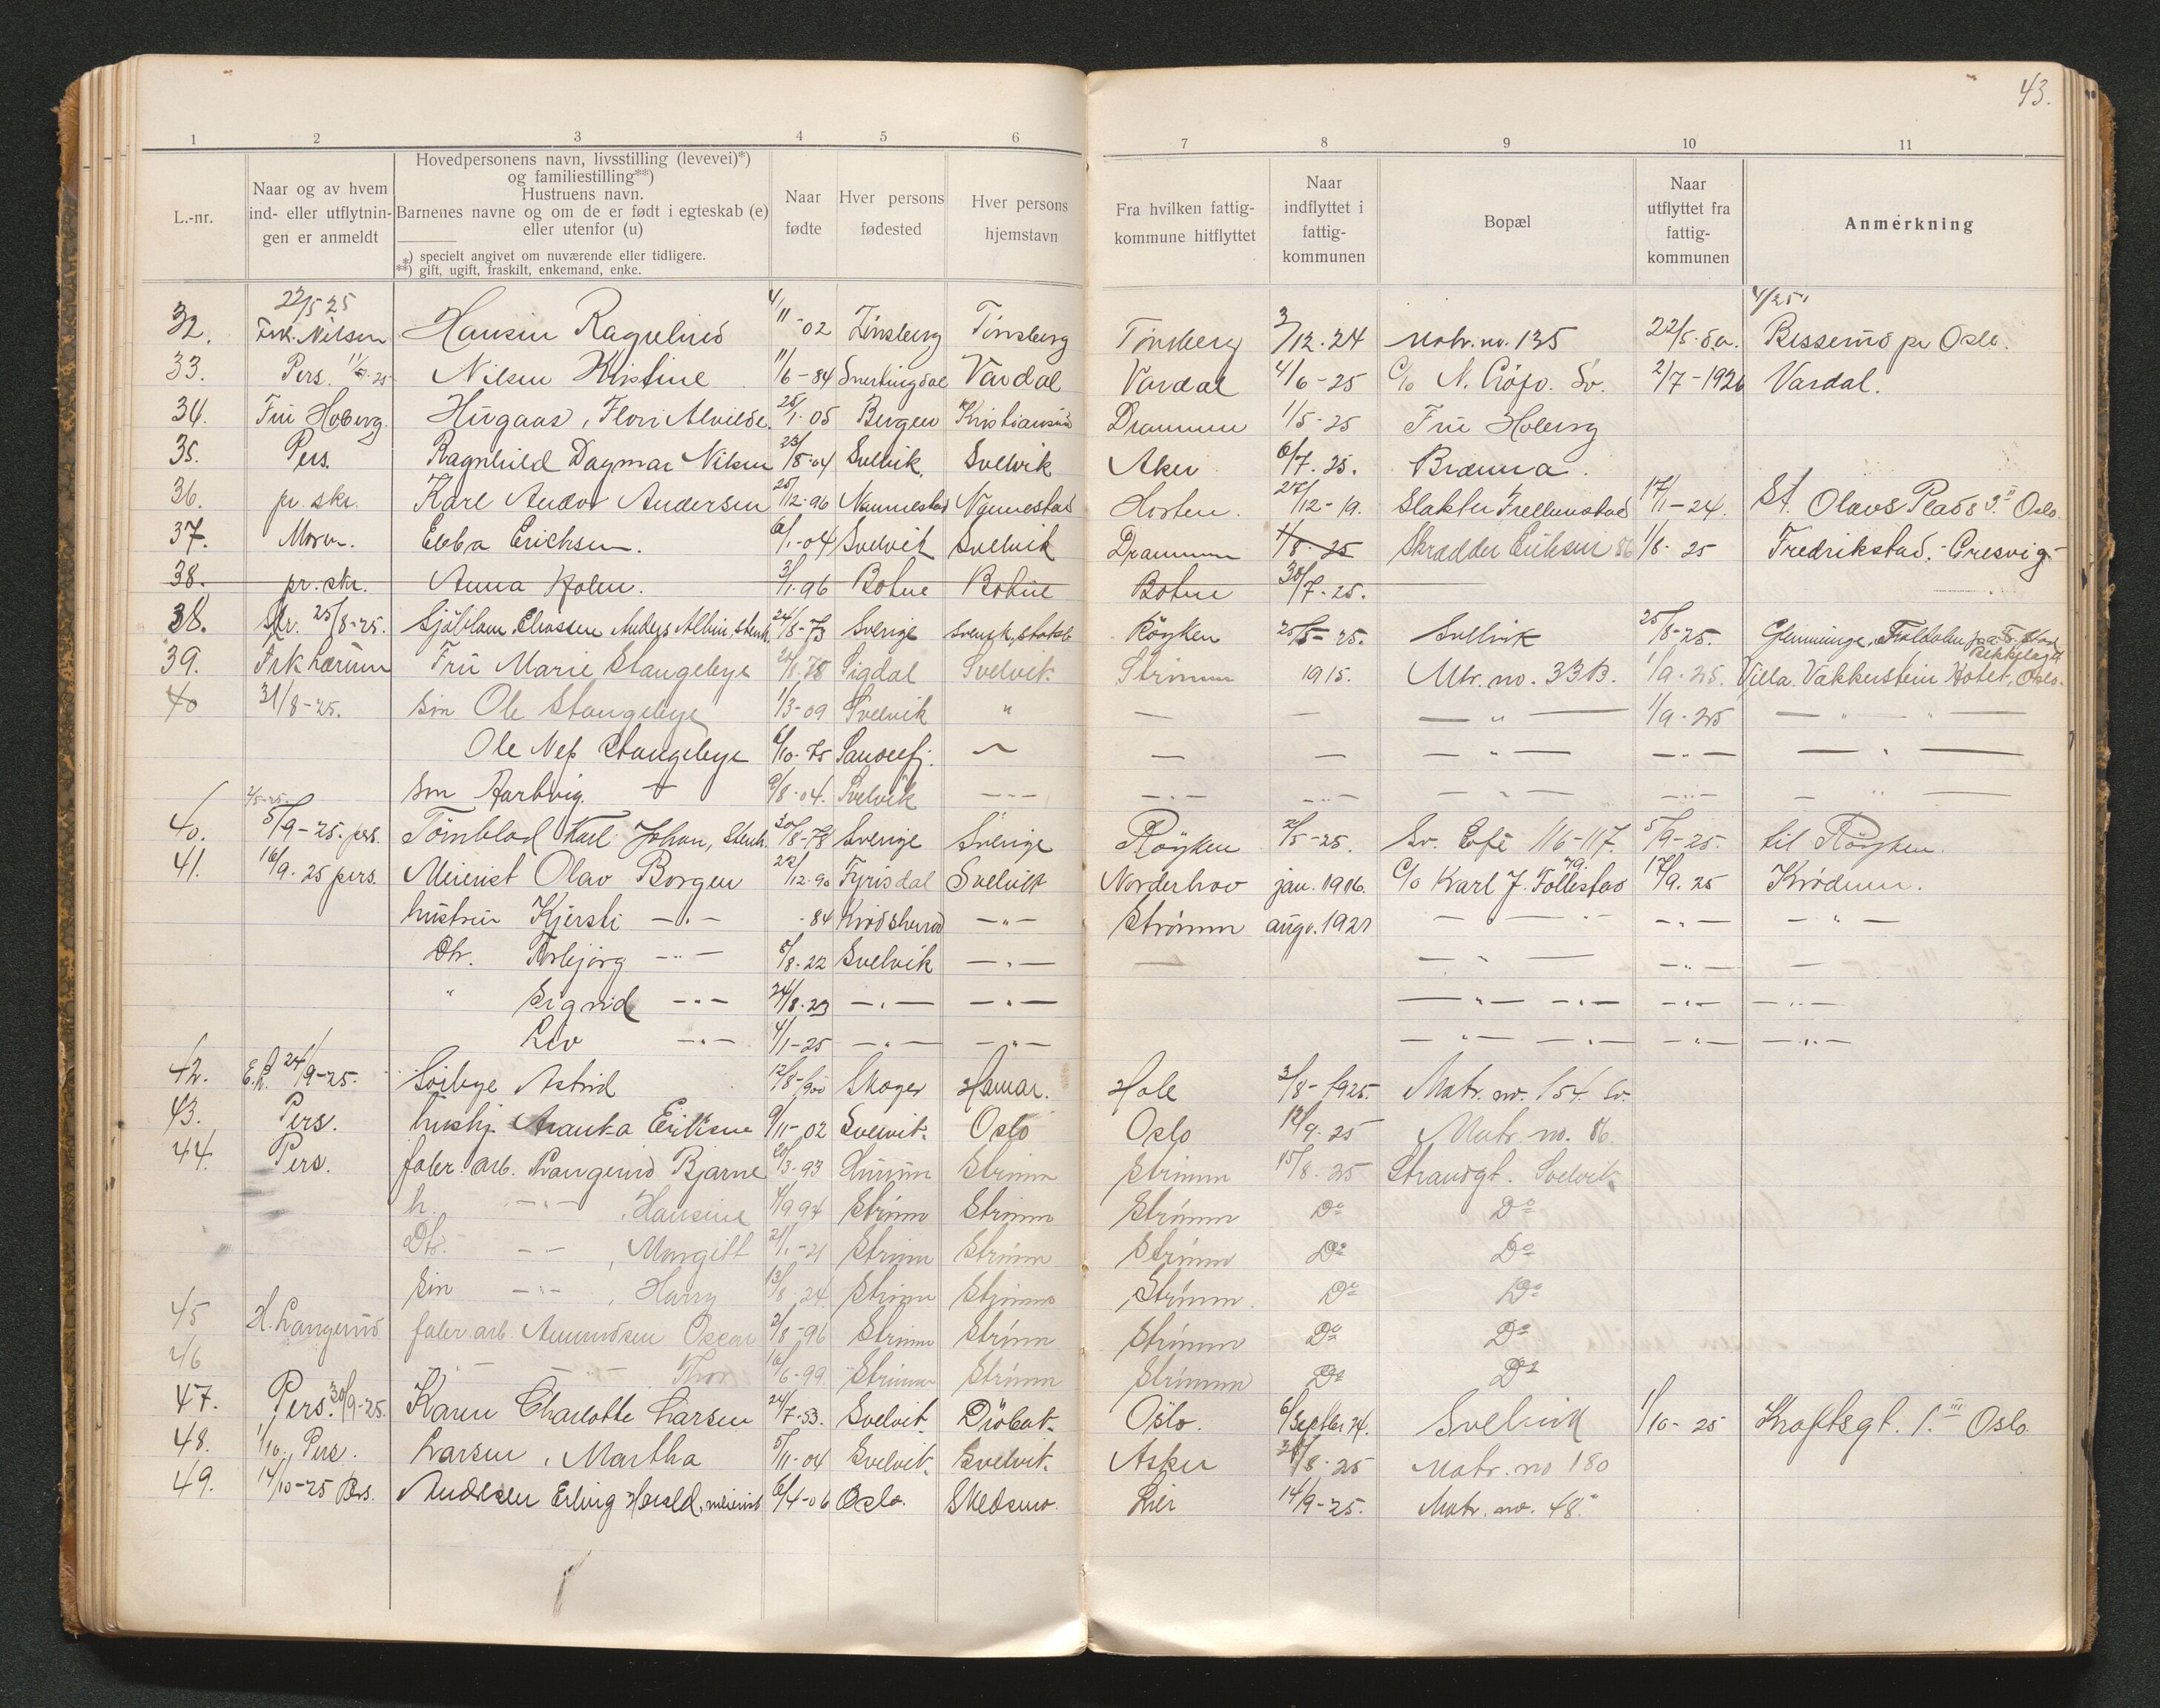 43.
1 2 3 4 5 6 7 8 9 10 11
L.-nr.
Naar og av hvem ind- eller utflytnin-gen er anmeldt
Hovedpersonens navn, livsstilling (levevei)*)
og familiestilling**)
Hustruens navn.
Barnenes navne og om de er født i egteskab (e)
eller utenfor (u)
*) specielt angivet om nuværende eller tidligere.
**) gift, ugift, fraskilt, enkemand, enke.
Naar fødte
Hver persons fødested
Hver persons hjemstavn
Fra hvilken fattig-kommune hitflyttet
Naar indflyttet i fattig-kommunen
Bopæl
Naar utflyttet fra fattig-kommunen
Anmerkning
32. 22/5 25 Frk. Nilsen Hansen Ragnhild 4/11-02 Tønsberg Tønsberg Tønsberg 3/12.24 Matr. nr. 135 22/5. d.a. 4/25 pr Oslo.
33. Pers. Nilsen Kristine 11/6-84 Snertingdal Vardal Vardal 4/6-25 C/o N. Sv. 2/7-1926 Vardal.
34. Fru Hoberg. Hugaas, Alvilde 25/1.05 Bergen Kristiansund Drammen 1/5-25 Fru Hoberg
35. Pers. Ragnhild Dagmar Nilsen 23/8-04 Svelvik Svelvik Aker 6/7.25. Brænna.
36. pr. skr. Karl Andor Andersen 25/12-96 Nannestad Nannestad Horten. 27/12-19. Slakter Trellenstad 17/1-24. St. Olavs Plads 3.II Oslo.
37. Moren. Ebba Erichsen. 6/1-04 Svelvik Svelvik Drammen 1/8-25 Skrædder Eriksen 86 1/8-25 Fredrikstad.-Gresvig-
38. pr. skr. Anna Holm. 3/1.96 Botne Botne Botne 30/7-25.
38. Skr. 25/8-25. Sjöblom, Anders Albin, Stenh. 24/8-73 Sverige svensk statsb Röyken 25/5-25. Svelvik 25/8-25. Glemminge,
39. Frk Lærum Fru Marie Stangebye 24/8.78 Sigdal Svelvik Strømm 1915. Mtr. no. 33B. 1/9-25. Villa Vakkerstein Hotel, Oslo. Bekkelaget
40 31/8-25. søn Ole Stangebye 1/3-09 Svelvik " — — — " — 1/9-25 — " — " —
Ole Nep Stangebye 6/10-75 Sandefj. — — — — " — — " — — " —
søn Hartvig. + 9/8-04. Svelvik — " — — " — — " — — " — — " — — " —
40. 2/5-25. 5/9-25. pers. Törnblad Karl Johan, Stenh. 30/8-78 Sverige Sverige Röyken 2/5-25. Sv. 116-117. 5/9-25. til Röyken.
41. 16/9.25 pers. Meierist Olav Borgen 22/12.90 Fyrisdal Svelvik Norderhov jan. 1916. C/o Karl J. Follestad 79. 17/9.25 Krødern.
hustru Kjersti — " — -84 Krødsherad — " — Strømm aug. 1921 — — " — — " — — " —
Dtr. Torbjørg — " — 8/8.22 Svelvik — " — — — " — — " — —
" Sigrid — " — 24/8.23 — " — — " — — " — — " — — " — — " —
Liv — " — 4/1-25 — " — — " — — " — — " — — " — — " —
42. E.L. 24/9-25. Soilbye Astrid 12/8-900 Skoger Hamar. Hole 3/8-1925. Matr. nr. 154 Sv.
43. Pers. hushj. Eriksen 9/11-02 Svelvik. Oslo Oslo 12/9-25 Matr. no. 86.
44. Pers. fabr. arb. Langerud Bjarne 20/3-93 Hurum Strømm Strømm 15/8-25 Strandgt. Svelvik
h. — " — , Hansine 4/9 94 Strømm Strømm Strømm Do Do
Dtr. — — , Margitt 21/1-21 Strømm Strømm Strømm Do Do
søn — " — , Harry 13/8-24 Strømm Strømm Strømm. Do Do
45 H. Langerud fabr. arb. Amundsen Oscar 2/8-96 Strømm Strømm Strømm Do Do
46 — — Thor 16/6-99 Strømm Strømm Strømm Do Do
47. Pers. 30/9-25. Karen Charlotte Larsen 24/7-53. Svelvik. Drøbak. Oslo. 6/septbr 24. Svelvik 1/10-25 Kraftsgt. 1.III Oslo.
48. 1/10. Pers. Larsen, Martha 5/11-04 Svelvik. Svelvik. Asker 31/8-25 Matr. no 180
49. 14/10-25 Pers. Andersen Erling Harald, meierist 6/4-06 Oslo. Skedsmo. Lier 14/9-25. Matr. nr. 48.